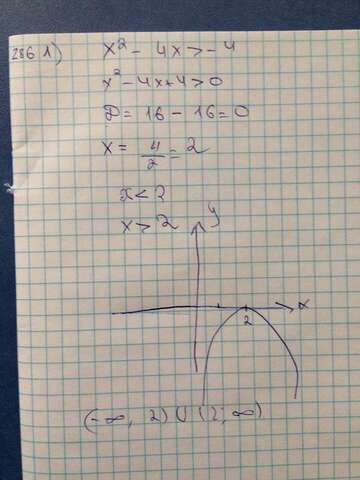 286 1) x² - 4x > -4
x² - 4x + 4 > 0
D = 16 - 16 = 0
x = 4/2 = 2
x < 2
x > 2
y
x
2
(-∞, 2) ∪ (2; ∞)